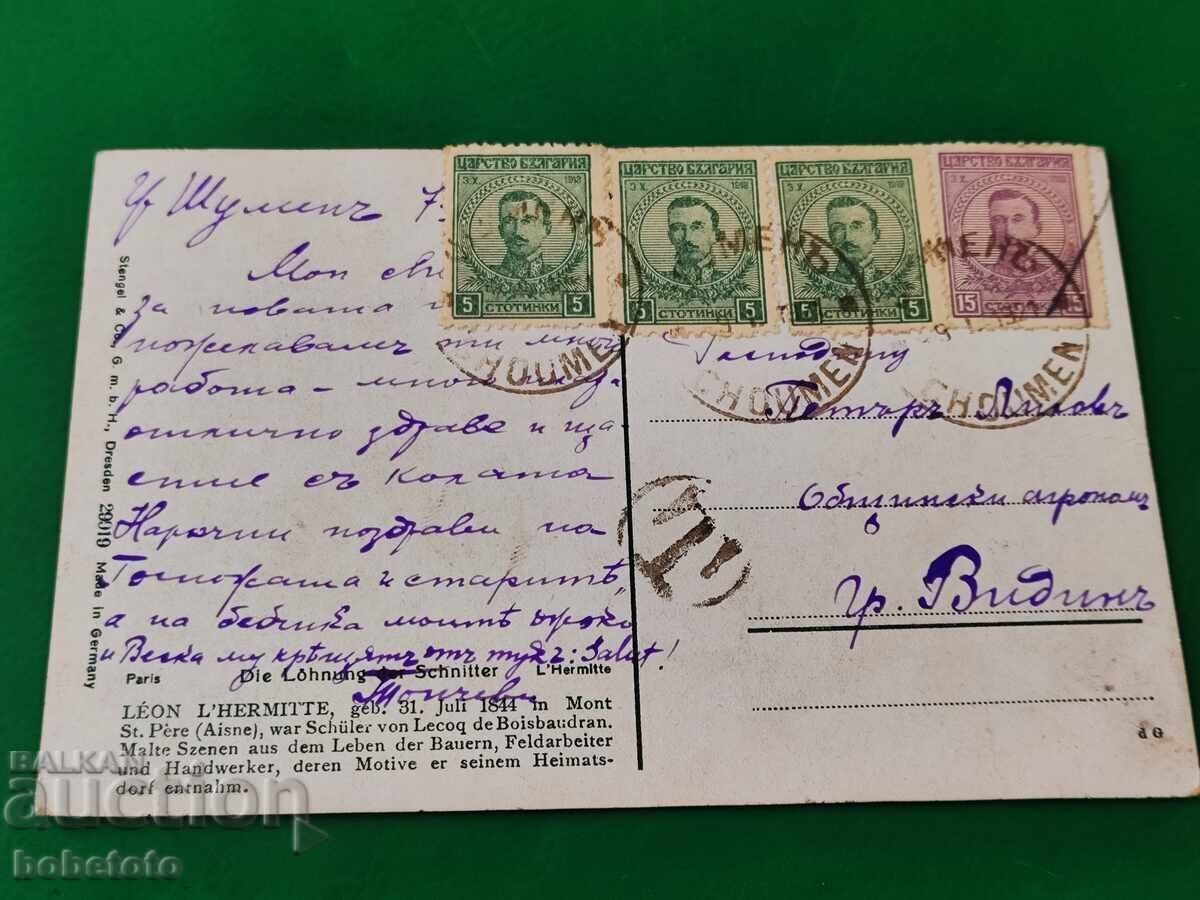 ЦАРСТВО БЪЛГАРИЯ
3 X 1918
5 СТОТИНКИ 5
ЦАРСТВО БЪЛГАРИЯ
3 X 1918
5 СТОТИНКИ 5
ЦАРСТВО БЪЛГАРИЯ
3 X 1918
5 СТОТИНКИ 5
ЦАРСТВО БЪЛГАРИЯ
3 X
15 15
CHOUMEN
CHOUMEN
CHOUMEN
Шуменъ 7
за новата
пожелавамъ ти много
работа – много
отлично здраве и ща-
стие съ
поздрави на
Госпожата и старитѣ,
а на бебчика моитѣ
и Веска му тукъ: Salut!
Господину
Петъръ
Общински агрономъ
гр. Видинъ
T
Stengel & Co., G. m. b. H., Dresden 29019 Made in Germany
Paris Die Löhnung der Schnitter L'Hermitte
LÉON L'HERMITTE, geb. 31. Juli 1844 in Mont
St. Père (Aisne), war Schüler von Lecoq de Boisbaudran.
Malte Szenen aus dem Leben der Bauern, Feldarbeiter
und Handwerker, deren Motive er seinem Heimats-
dorf entnahm.
d G
BALKAN
auction
bobetoto